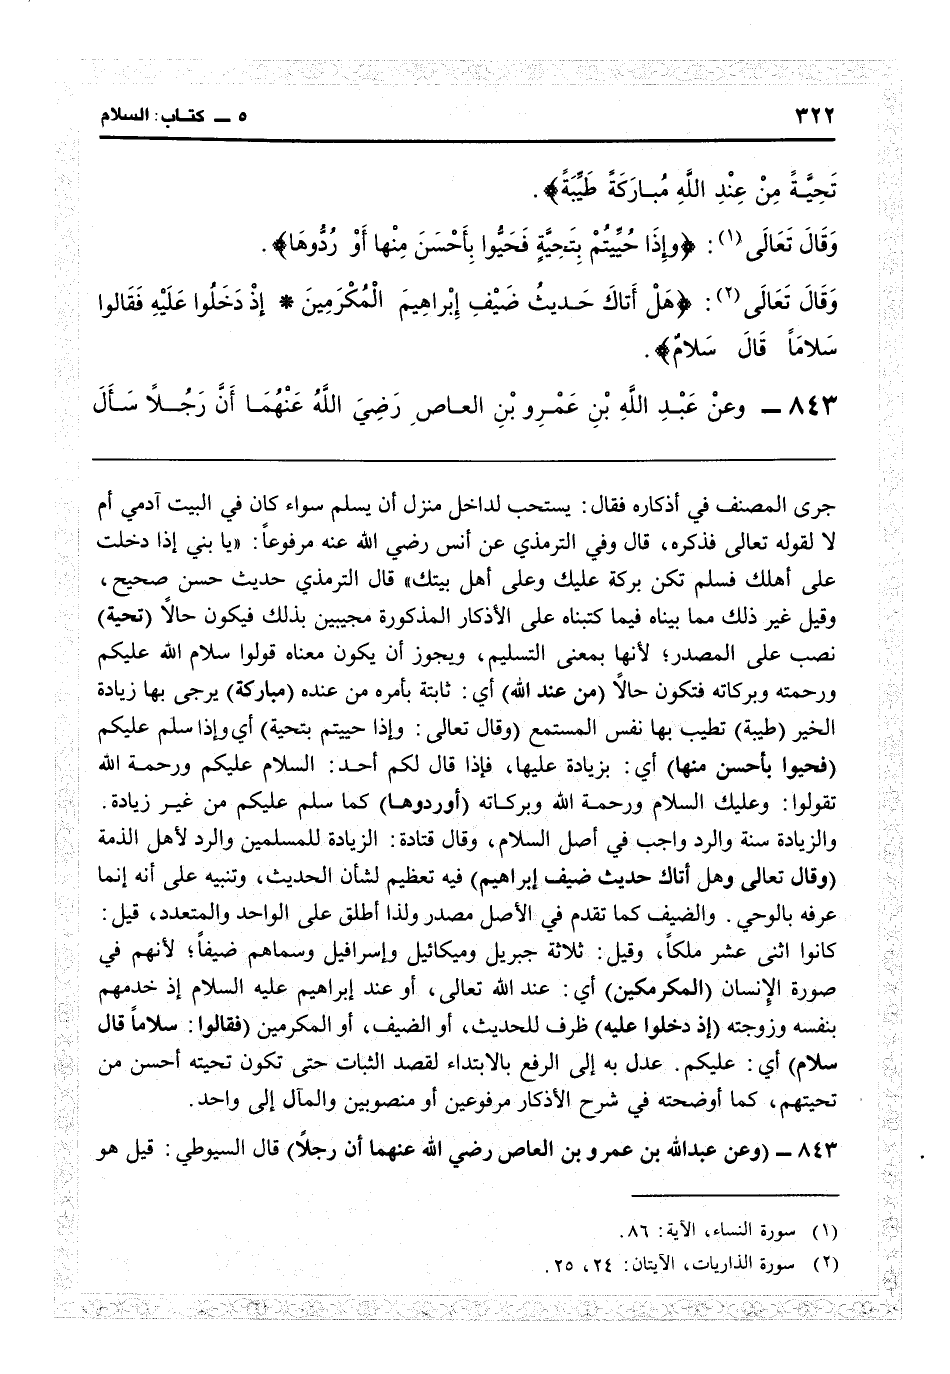 ٣٢٢
٥ ــ كتـاب: السلام
تَحِيَّـةً مِنْ عِنْدِ اللَّهِ مُبـارَكَةً طَيِّبَةً﴾.
وَقَالَ تَعَالَى(١): ﴿وإِذَا حُيِّيتُمْ بِتَحِيَّةٍ فَحَيُّوا بِأَحْسَنَ مِنْها أَوْ رُدُّوهَا﴾.
وَقَالَ تَعَالَى(٢): ﴿هَلْ أَتاكَ حَـديثُ ضَيْفِ إِبْراهِيمَ الْمُكْرَمِينَ * إِذْ دَخَلُوا عَلَيْهِ فَقَالوا
سَلامَاً قَالَ سَلامٌ﴾.
٨٤٣ ــ وعنْ عَبْـدِ اللَّهِ بْنِ عَمْـرو بْنِ العـاص ِ رَضِيَ اللَّهُ عَنْهُمَـا أَنَّ رَجُـلاً سَـأَلَ
جرى المصنف في أذكاره فقال: يستحب لداخل منزل أن يسلم سواء كان في البيت آدمي أم
لا لقوله تعالى فذكره، قال وفي الترمذي عن أنس رضي الله عنه مرفوعاً: «يا بني إذا دخلت
على أهلك فسلم تكن بركة عليك وعلى أهل بيتك» قال الترمذي حديث حسن صحيح،
وقيل غير ذلك مما بيناه فيما كتبناه على الأذكار المذكورة مجيبين بذلك فيكون حالاً (تحية)
نصب على المصدر؛ لأنها بمعنى التسليم، ويجوز أن يكون معناه قولوا سلام الله عليكم
ورحمته وبركاته فتكون حالاً (من عند الله) أي: ثابتة بأمره من عنده (مباركة) يرجى بها زيادة
الخير (طيبة) تطيب بها نفس المستمع (وقال تعالى: وإذا حييتم بتحية) أي وإذا سلم عليكم
(فحيوا بأحسن منها) أي: بزيادة عليها، فإذا قال لكم أحـد: السلام عليكم ورحمـة الله
تقولوا: وعليك السلام ورحمـة الله وبركـاته (أوردوهـا) كما سلم عليكم من غيـر زيادة.
والزيادة سنة والرد واجب في أصل السلام، وقال قتادة: الزيادة للمسلمين والرد لأهل الذمة
(وقال تعالى وهل أتاك حديث ضيف إبراهيم) فيه تعظيم لشأن الحديث، وتنبيه على أنه إنما
عرفه بالوحي. والضيف كما تقدم في الأصل مصدر ولذا أطلق على الواحد والمتعدد، قيل:
كانوا اثنى عشر ملكاً، وقيل: ثلاثة جبريل وميكائيل وإسرافيل وسماهم ضيفاً؛ لأنهم في
صورة الإنسان (المكرمكين) أي: عند الله تعالى، أو عند إبراهيم عليه السلام إذ خدمهم
بنفسه وزوجته (إذ دخلوا عليه) ظرف للحديث، أو الضيف، أو المكرمين (فقالوا: سلاماً قال
سلام) أي: عليكم. عدل به إلى الرفع بالابتداء لقصد الثبات حتى تكون تحيته أحسن من
تحيتهم، كما أوضحته في شرح الأذكار مرفوعين أو منصوبين والمآل إلى واحد.
٨٤٣ ــ (وعن عبدالله بن عمرو بن العاص رضي الله عنهما أن رجلاً) قال السيوطي: قيل هو
(١) سورة النساء، الآية: ٨٦.
(٢) سورة الذاريات، الآيتان: ٢٤، ٢٥.